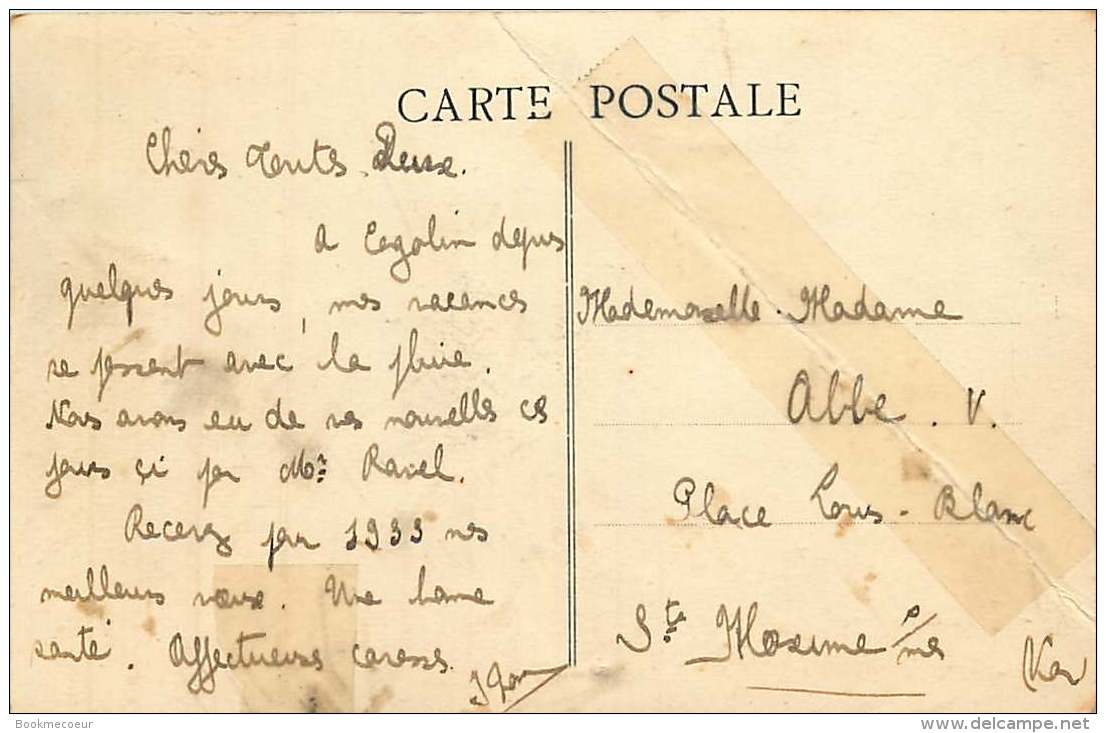 CARTE POSTALE
Chères Toutes Deux.
A Cogolin depuis
quelques jours, mes vacances
se passent avec la pluie.
Nous avons eu de vos nouvelles ces
jours çi par Mr Ravel.
Recevez par 1933 nos
meilleurs vœux. Une bonne
santé. Affectueuses caresses.
Mademoiselle. Madame
Abbe. V.
Place Louis-Blanc
Ste Maxime s/mer
Var
Bookmecoeur
www.delcampe.net